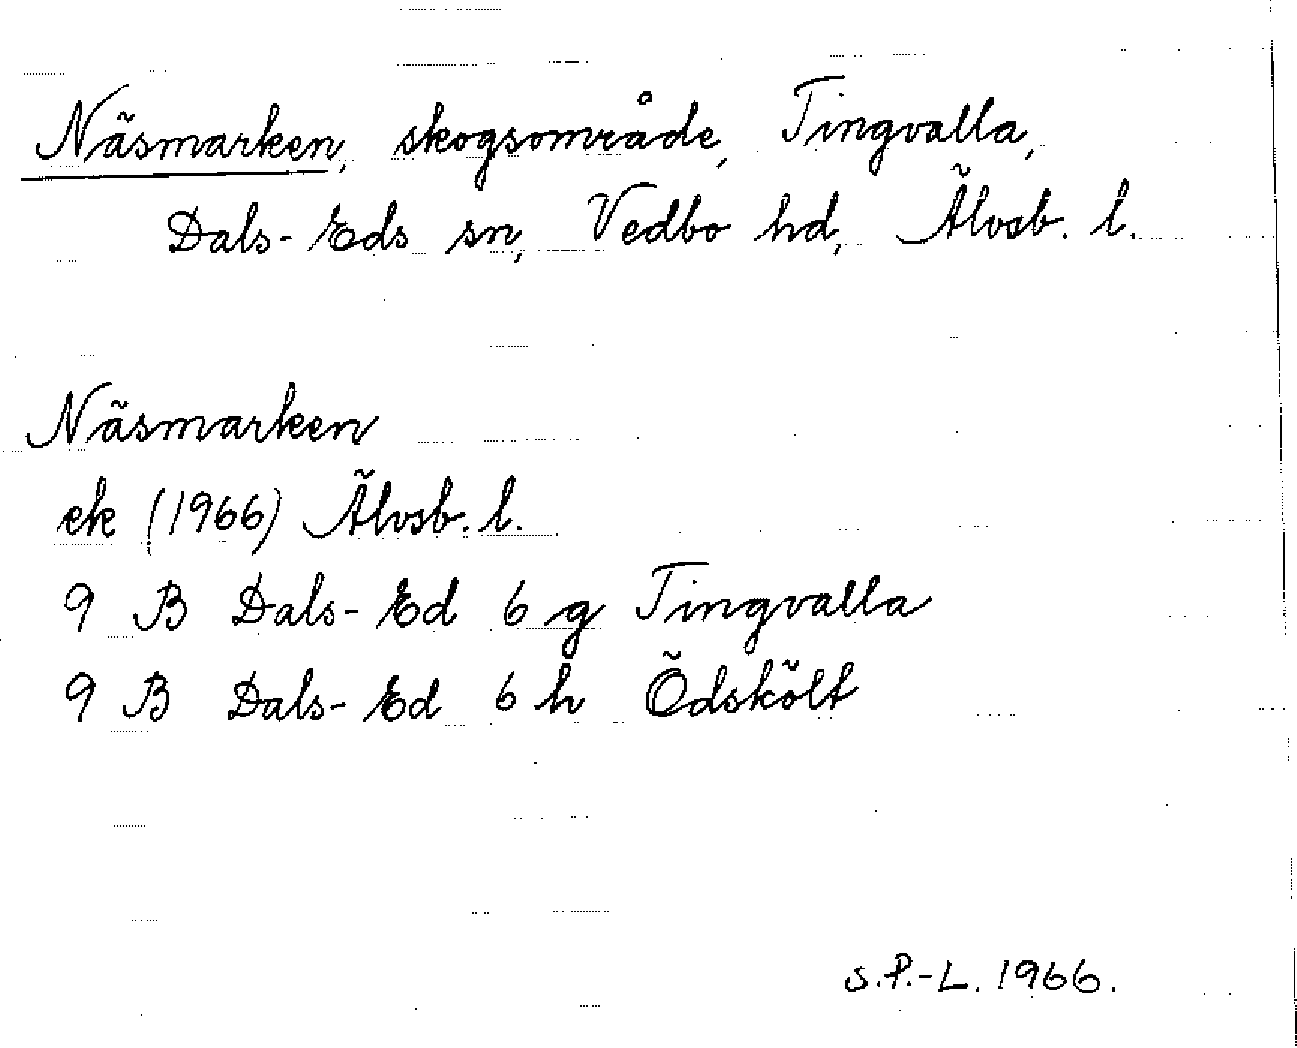 Näsmarken, skogsområde, Tingvalla,
Dals-Eds sn, Vedbo hd, Älvsb. l.
Näsmarken
ek (1966) Älvsb. l.
9 B Dals-Ed 6 g Tingvalla
9 B Dals-Ed 6 h Ödskölt
S.P.-L. 1966.